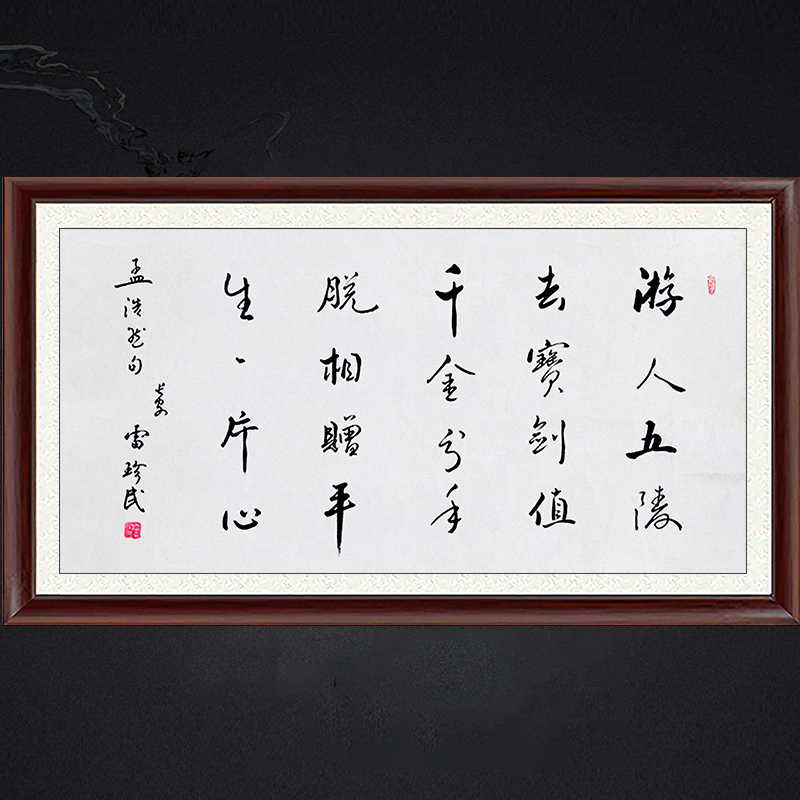 游人五陵
去寶劍值
千金分手
脱相贈平
生一片心
孟浩然句
長安
雷珍民